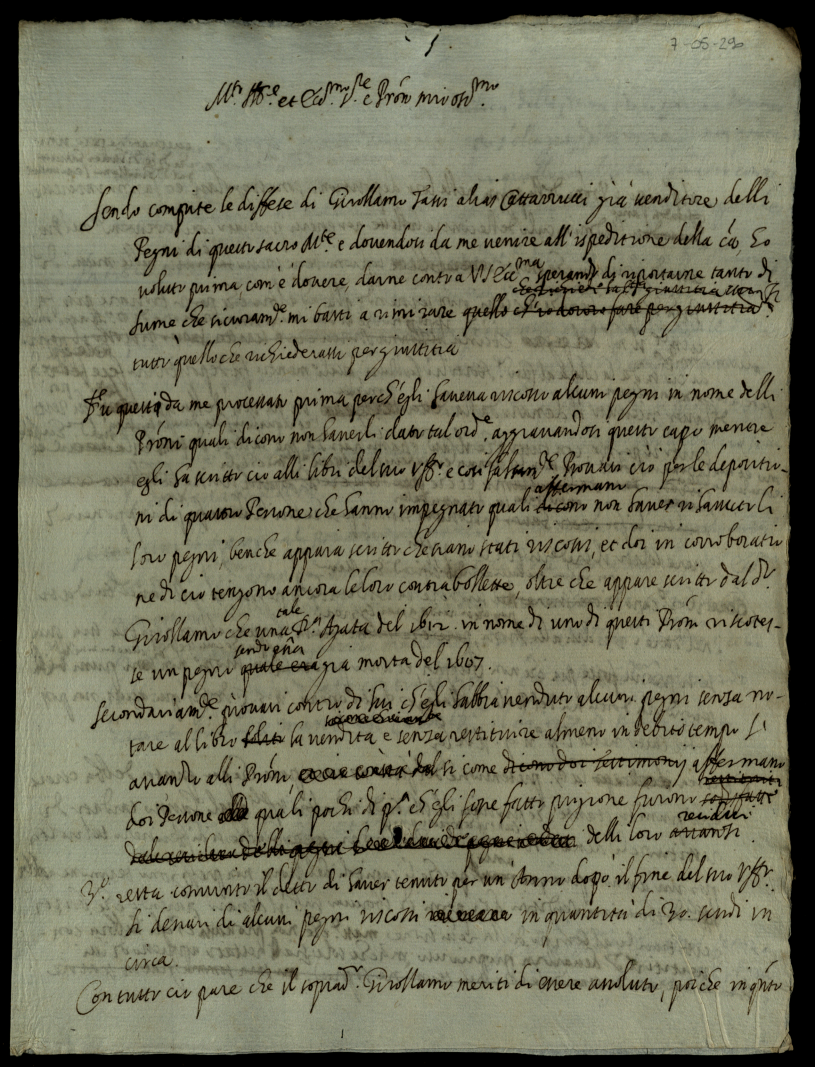 1
7-05-29
M.to Ill.re et Ecc.mo S.re e Prõn mio oss.mo
Sendo compite le diffese di Girollamo Tassi alias Cattarucci già venditore delli
Pegni di questo sacro M.te e dovendosi da me venire all'ispeditione della cã, ho
voluto prima, com'è dovere, darne conto a V S Ecc.ma sperando di riportarne tanto di
lume che sicuram.te mi basti a rimirare quello ch'io dovrò fare per giustitia
tutto quello che richiederassi per giustitia
Fu questi da me processato prima perch'egli haveva riscosso alcuni pegni in nome delli
Prõni quali dicono non haverli dato tal ord.e, aggravandosi questo capo mentre
egli ha scritto ciò alli libri del suo uff.o e così falsam.te. Provasi ciò per le depositio-
ni di quattro Persone che hanno impegnato quali dicono affermano non haver rihavuto li
loro pegni, benche appaia scritto che siano stati riscossi, et doi in corroboratio
ne di ciò tengono ancora le loro contrabollette, oltre che appare scritto dal d.o
Girollamo che una tale D.a Agata del 1612. in nome di uno di questi Prõni riscotes-
se un pegno quale era già morta del 1607.
Secondariam.te provasi contro di lui ch'egli habbia venduto alcuni pegni senza no-
tare al libro la vendita e senza restituire almeno in debito tempo l'
avanzo alli Prõni, si come dicono doi testimonij affermano
doi Persone quali pochi dì p.a ch'egli fosse fatto prigione furono sodisfatti
delli loro avanzi residui
3.o resta convinto il detto di haver tenuto per un'Anno dopò il fine del suo uff.o
li denari di alcuni pegni riscossi in quantità di 30. scudi in
circa.
Con tutto ciò pare che il soprad.o Girollamo meriti di essere assoluto, poiche in q.nto